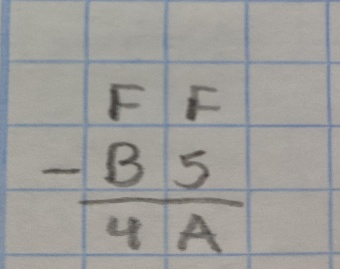 F F
- B 5
4 A